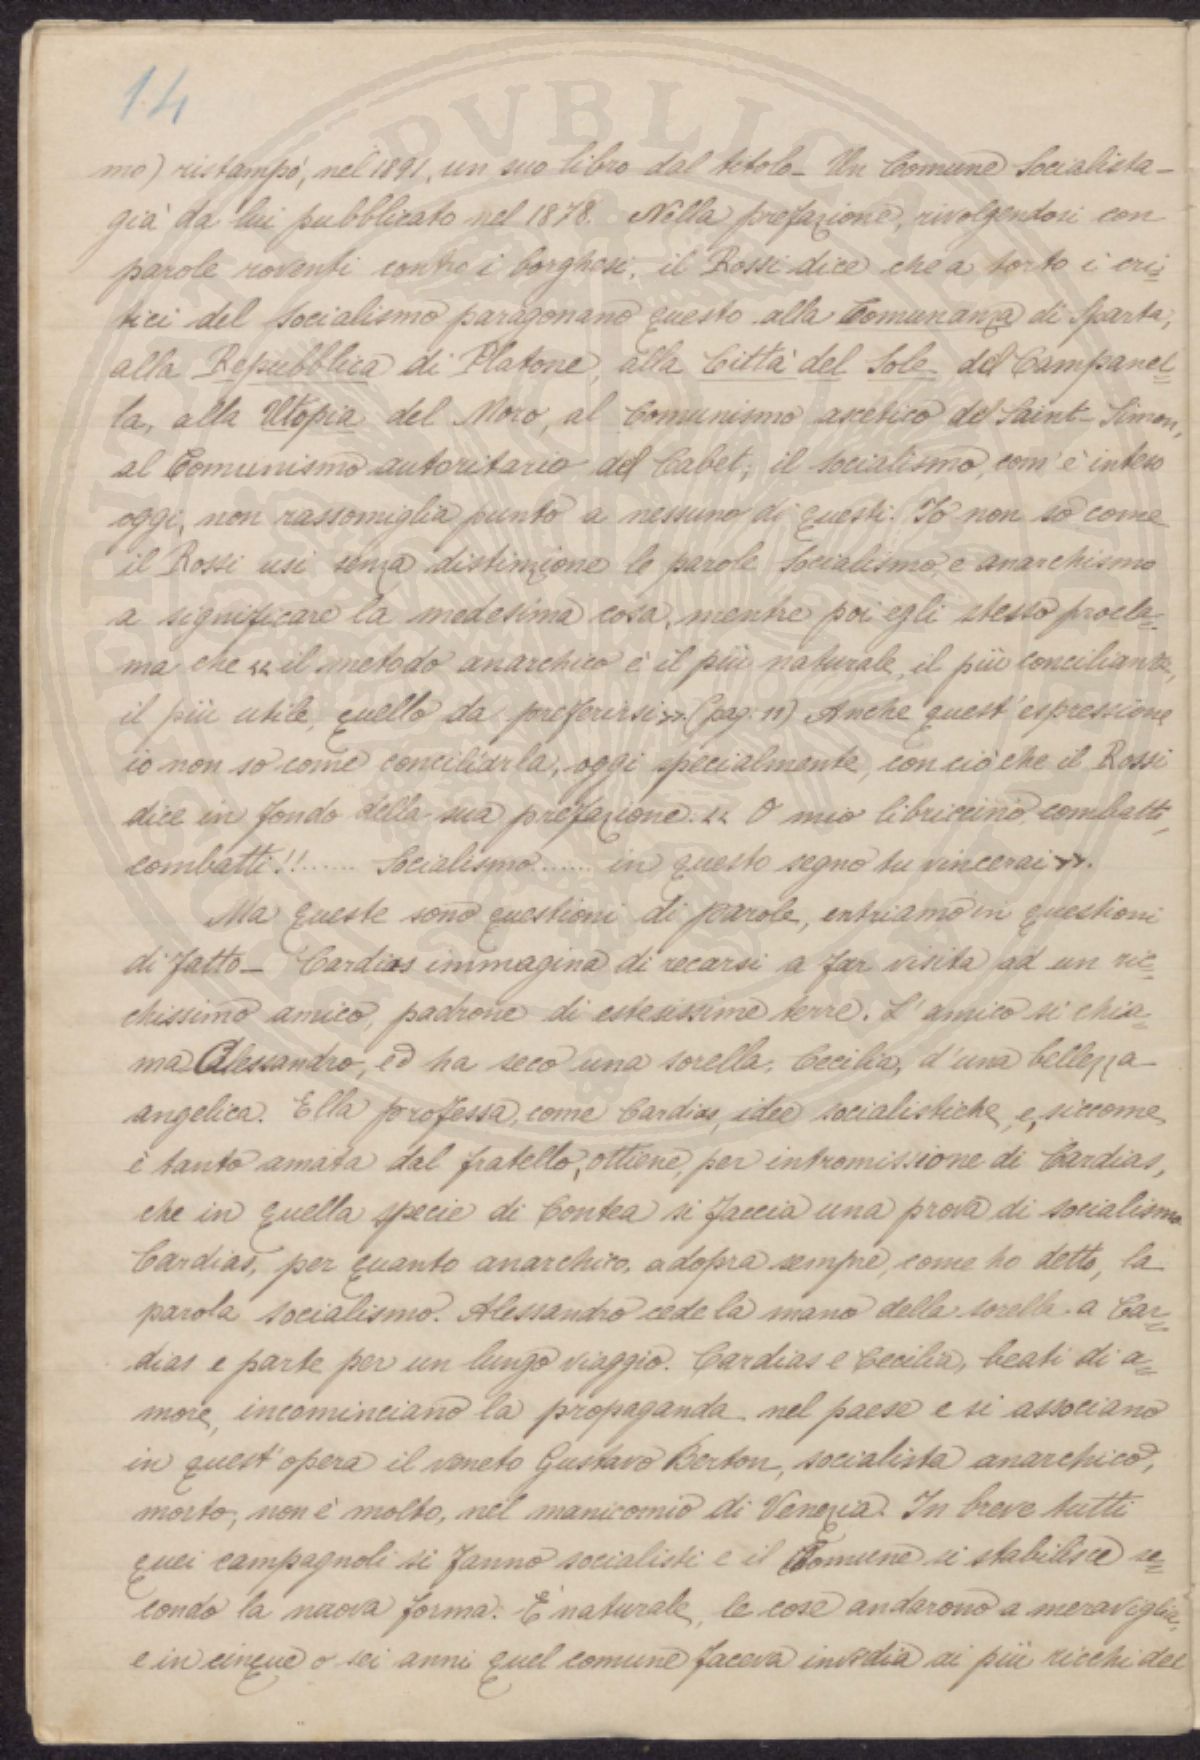 14
mo) ristampò, nel 1891, un suo libro dal titolo_ Un Comune Socialista_
già da lui pubblicato nel 1878. Nella prefazione, rivolgendosi con
parole roventi contro i borghesi, il Rossi dice che a torto i cri=
tici del Socialismo paragonano questo alla Comunanza di Sparta,
alla Repubblica di Platone, alla Città del Sole del Campanel=
la, alla Utopia del Moro, al Comunismo ascetico del Saint-Simon,
al Comunismo autoritario del Cabet; il socialismo, com'è inteso
oggi, non rassomiglia punto a nessuno di questi. Io non so come
il Rossi usi senza distinzione le parole Socialismo e anarchismo
a significare la medesima cosa, mentre poi egli stesso procla=
ma che « il metodo anarchico è il più naturale, il più conciliante,
il più utile, quello da preferirsi» (pag. 11) Anche quest'espressione
io non so come conciliarla, oggi specialmente, con ciò che il Rossi
dice in fondo della sua prefazione: « O mio libriccino, combatti,
combatti!!...... Socialismo...... in questo segno tu vincerai».
Ma queste sono questioni di parole, entriamo in questioni
di fatto_ Cardias immagina di recarsi a far visita ad un ric=
chissimo amico, padrone di estesissime terre. L'amico si chia=
ma Alessandro, ed ha seco una sorella, Cecilia, d'una bellezza
angelica. Ella professa, come Cardias, idee socialistiche, e, siccome
è tanto amata dal fratello, ottiene, per intromissione di Cardias,
che in quella specie di Contea si faccia una prova di socialismo.
Cardias, per quanto anarchico, adopra sempre, come ho detto, la
parola socialismo. Alessandro cede la mano della sorella a Car=
dias e parte per un lungo viaggio. Cardias e Cecilia, beati di a=
more, incominciano la propaganda nel paese e si associano
in quest'opera il veneto Gustavo Berton, socialista anarchico,
morto, non è molto, nel manicomio di Venezia. In breve tutti
quei campagnoli si fanno socialisti e il Comune si stabilisce se=
condo la nuova forma. È naturale, le cose andarono a meraviglia,
e in cinque o sei anni quel comune faceva invidia ai più ricchi del